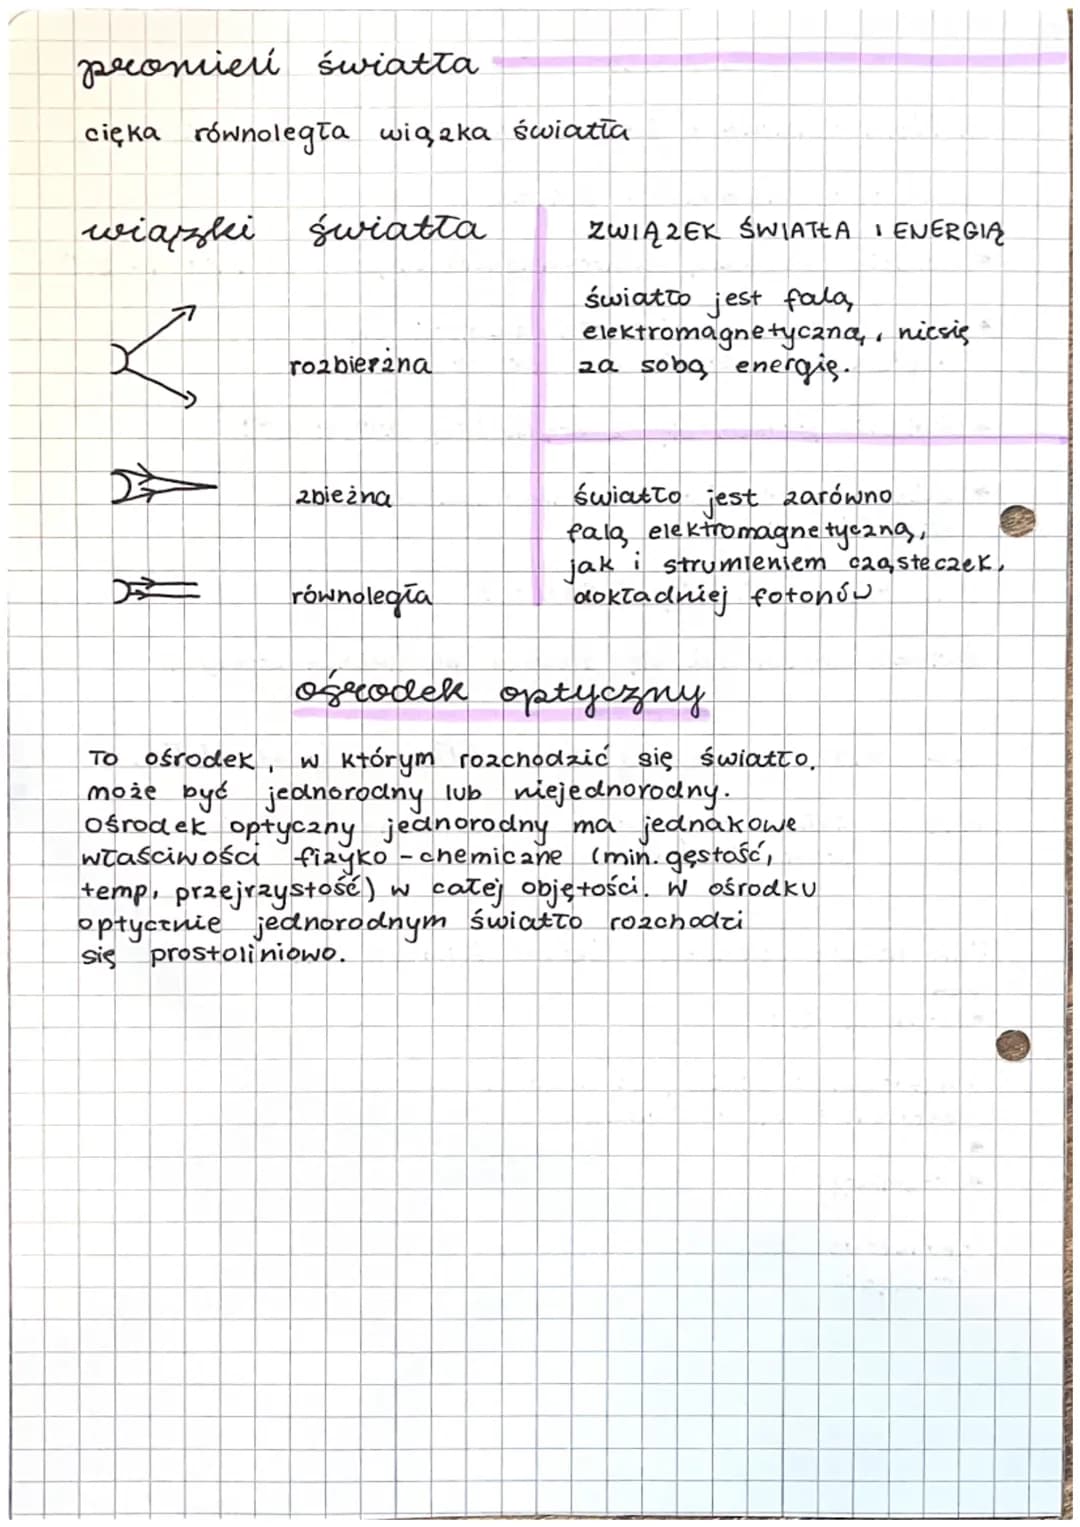 promień światła
cięka równoległa wiązka światła
wiązki światła
rozbieżna
zbieżna
równoległa
ZWIĄZEK ŚWIATŁA I ENERGIĄ
światło jest falą
elektromagnetyczną, niesię
za sobą energię.
światło jest zarówno
falą elektromagnetyczną,
jak i strumieniem cząsteczek,
dokładniej fotonów
ośrodek optyczny
To ośrodek, w którym rozchodzić się światło.
może być jednorodny lub niejednorodny.
Ośrodek optyczny jednorodny ma jednakowe
właściwości fizyko-chemiczne (min. gęstość,
temp, przejrzystość) w całej objętości. W ośrodku
optycznie jednorodnym światło rozchodzi
się prostoliniowo.